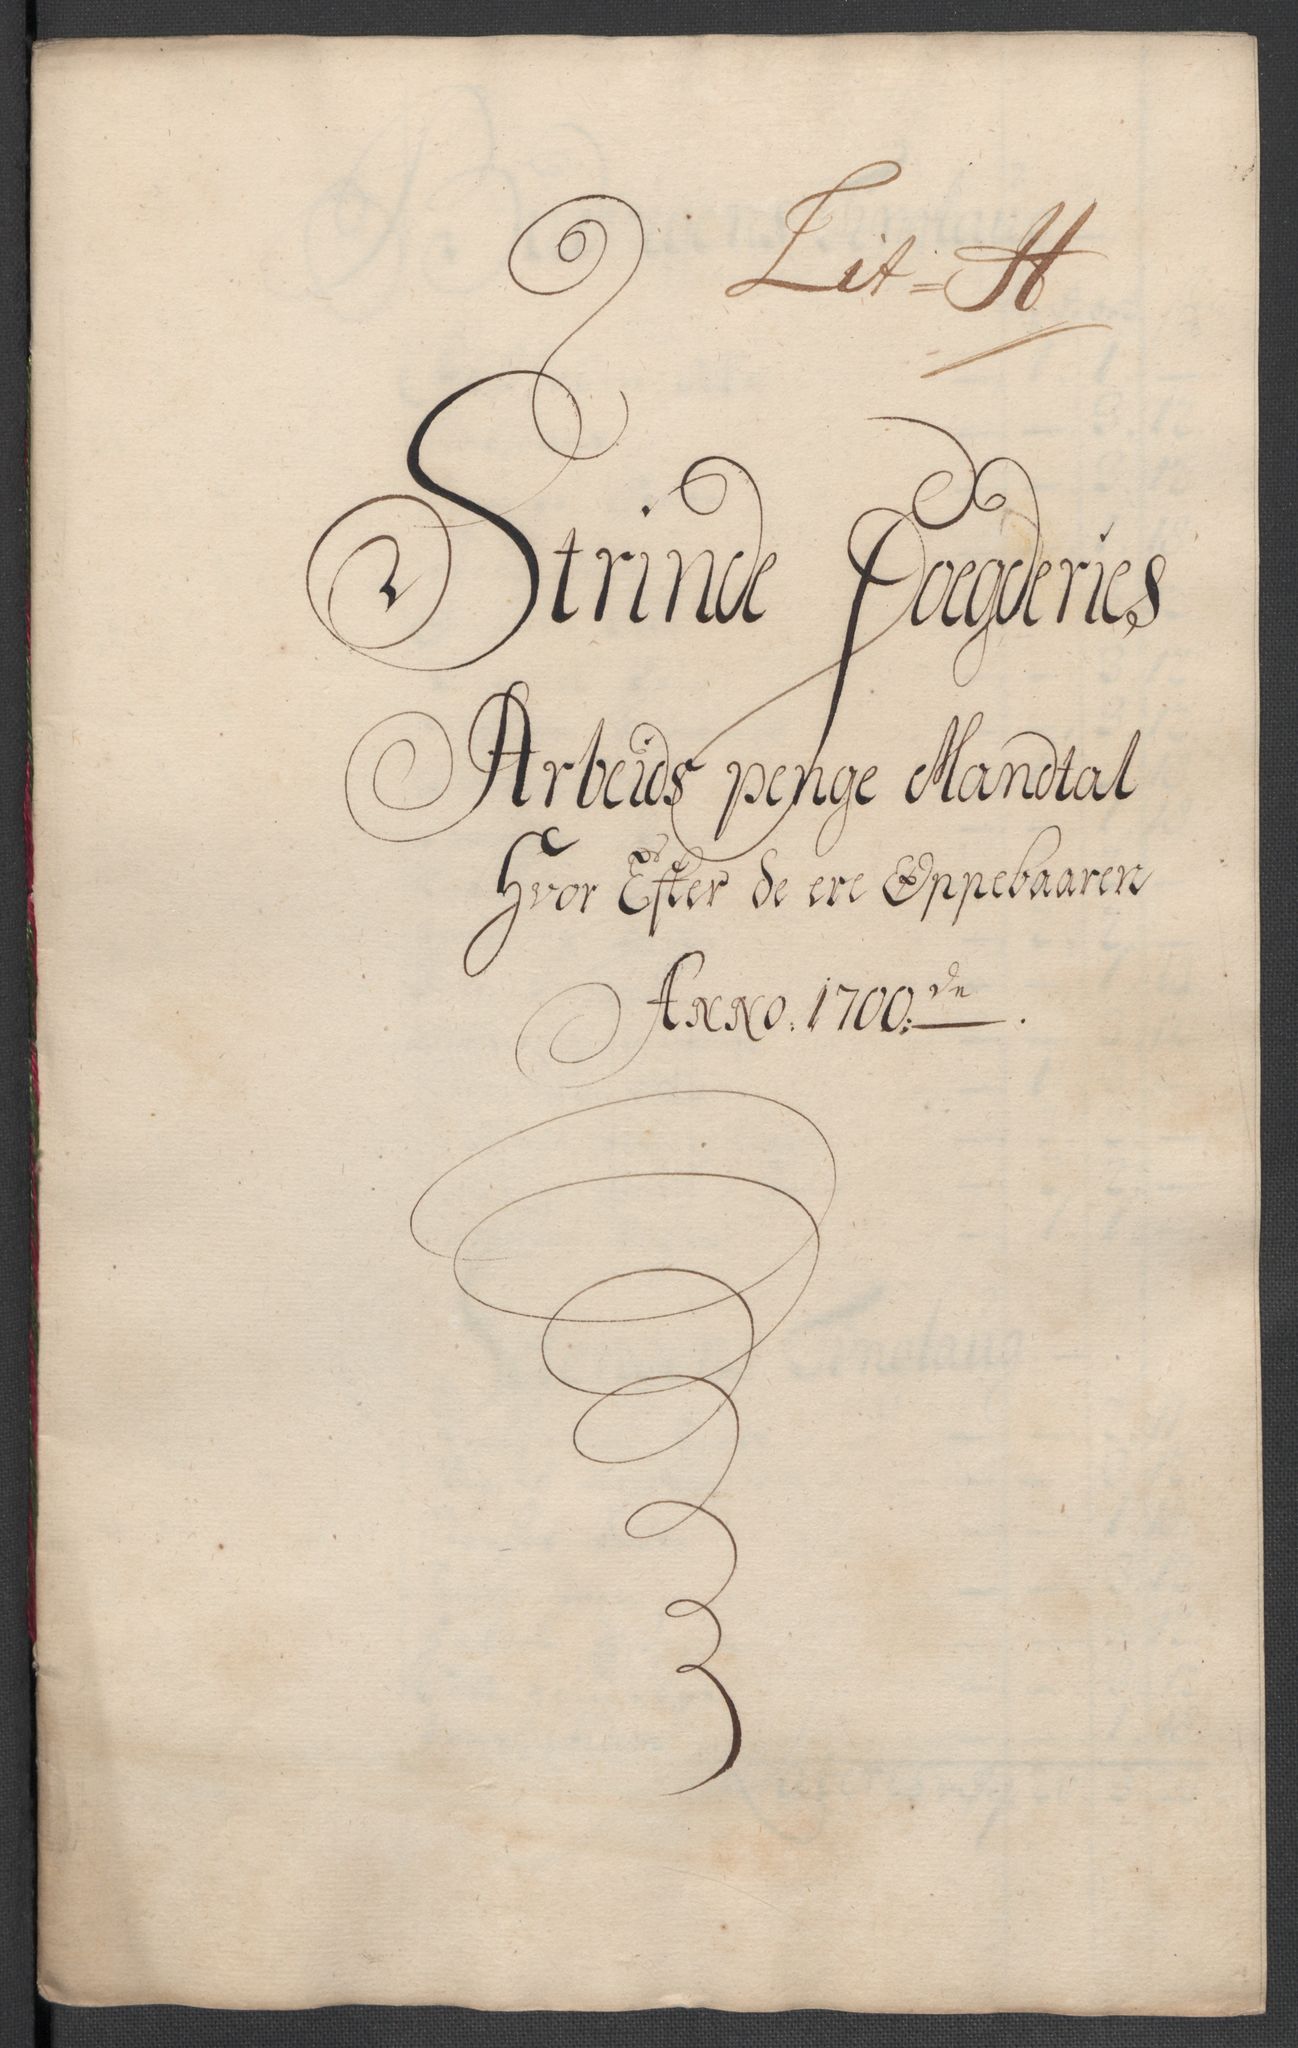 Lit=H
Strinde Foegderies
Arbeids penge Mandtal
Hvor Efter de ere Oppebaaren
Anno. 1700: de.